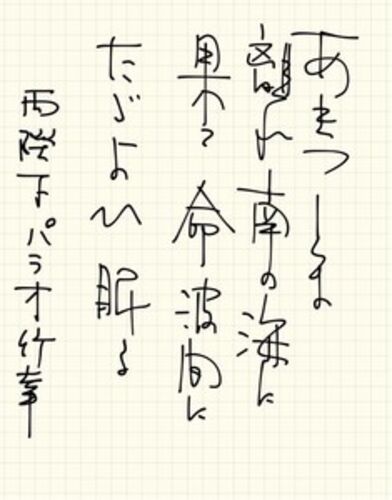 あきつしま
離れ南の海に
果つ命波間に
たゞよひ眠る
両陛下パラオ行幸